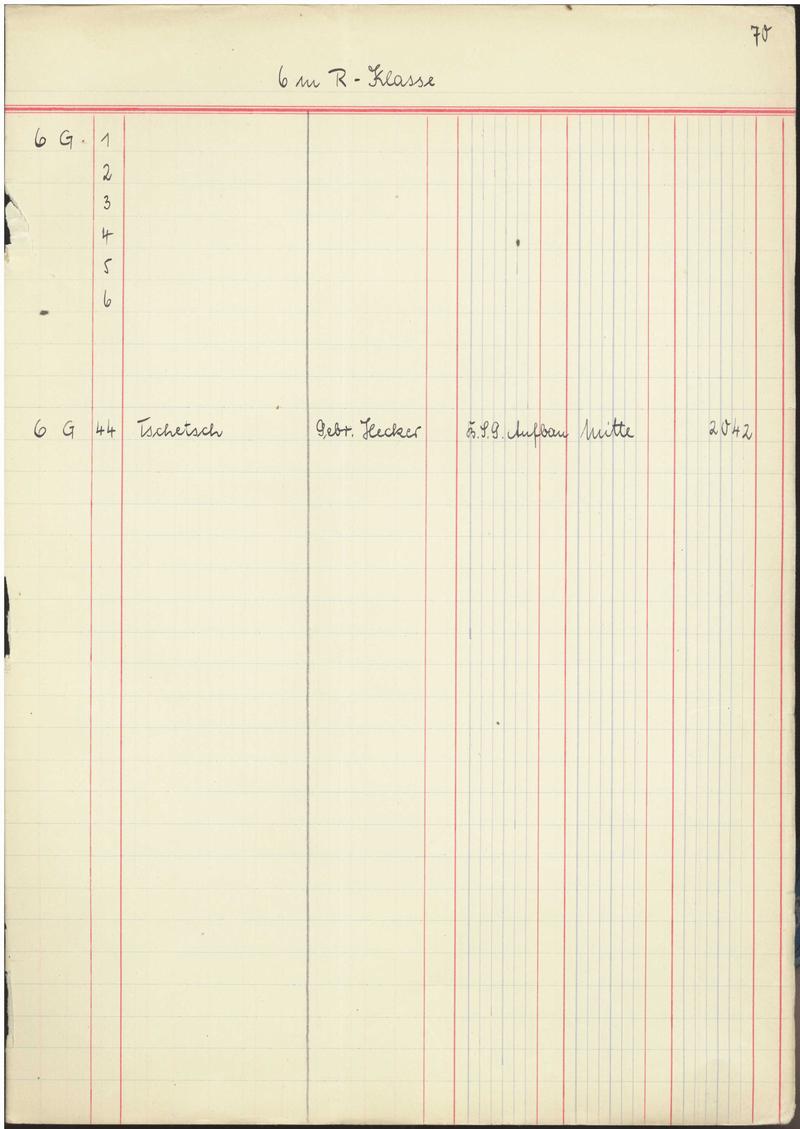 70
6 m R - Klasse
6 G. 1
2
3
4
5
6
6 G 44 Tschetsch Gebr. Hecker B.S.G. Aufbau Mitte 2042